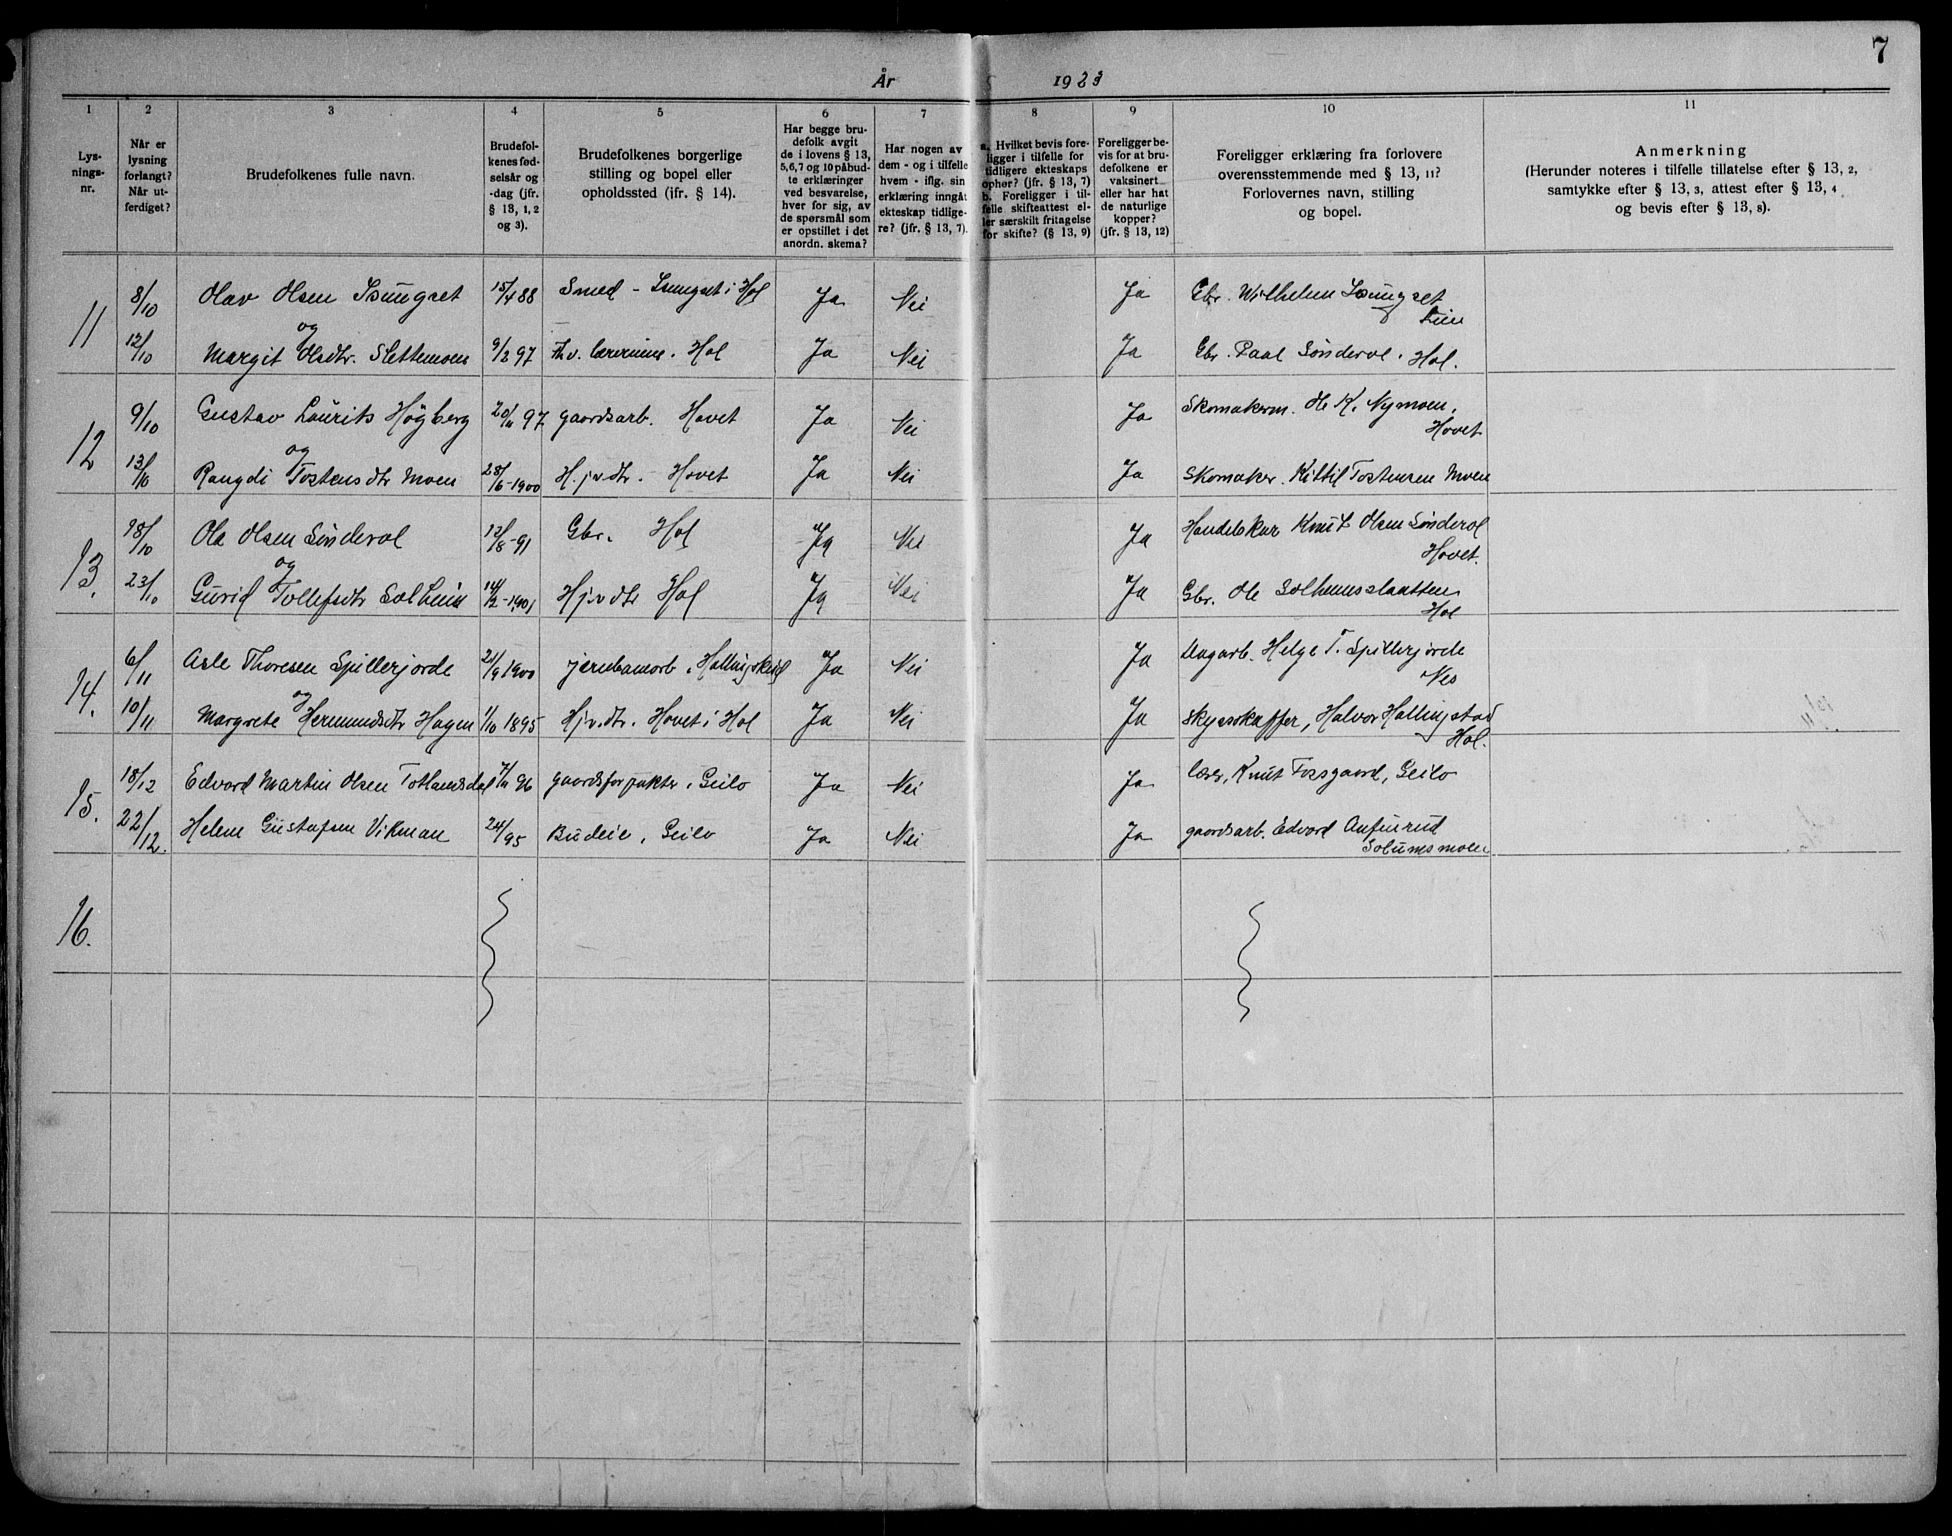 7
År 1923
1 2 3 4 5 6 7 8 9 10 11
Lys-
nings-
nr.
Når er
lysning
forlangt?
Når ut-
ferdiget?
Brudefolkenes fulle navn.
Brudefol-
kenes fød-
selsår og
-dag (jfr.
§ 13, 1, 2
og 3).
Brudefolkenes borgerlige
stilling og bopel eller
opholdssted (ifr. § 14).
Har begge bru-
defolk avgit
de i lovens § 13,
5,6,7 og 10 påbud-
te erklæringer
ved besvarelse,
hver for sig, av
de spørsmål som
er opstillet i det
anordn. skema?
Har nogen av
dem - og i tilfelle
hvem - iflg. sin
erklæring inngåt
ekteskap tidlige-
re? (jfr. § 13, 7).
a. Hvilket bevis fore-
ligger i tilfelle for
tidligere ekteskaps
ophør? (jfr. § 13, 7)
b. Foreligger i til-
felle skifteattest el-
ler særskilt fritagelse
for skifte? (§ 13, 9)
Foreligger be-
vis for at bru-
defolkene er
vaksinert
eller har hat
de naturlige
kopper?
(jfr. § 13, 12)
Foreligger erklæring fra forlovere
overensstemmende med § 13, 11?
Forlovernes navn, stilling
og bopel.
Anmerkning
(Herunder noteres i tilfelle tillatelse efter § 13, 2,
samtykke efter § 13, 3, attest efter § 13, 4
og bevis efter § 13, 8).
11 8/10 Olav Olsen Isungset 15/4 88 Smed - Isungset i Hol Ja Nei Ja Gbr. Wilhelm Isungset
Lien
og
12/10 Margit Olsdtr. Slettemoen 9/2 97 Fhv. lærerinne. Hol Ja Nei Ja Gbr. Paal Sønderol. Hol.
12 9/10 Gustav Laurits Högberg 20/11 97 gaardsarb. Hovet Ja Nei Ja Skomakerm. Ole K. Nymoen,
Hovet
og
13/10 Rangdi Tostensdtr Moen 28/6-1900 Hj.v.dtr. Hovet Ja Nei Ja Skomaker. Kittil Tostensen Moen
13. 18/10 Ola Olsen Sønderol 13/8-91 Gbr. Hol Ja Nei Ja Handelskar Knut Olsen Sønderol
Hovet.
og
23/10 Gurid Tollefsdtr Solheim 14/12-1901 Hj.v.dtr Hol Ja Nei Ja Gbr. Ole Solheimsslaatten
Hol
14. 6/11 Asle Thoresen Spillerjorde 21/9 1900 jernbanearb. Hallingskeid Ja Nei Ja Dagarb. Helge T. Spillerjorde
Nes
og
10/11 Margrete Hermundsdtr Hagen 1/10 1895 Hj.v.dtr. Hovet i Hol Ja Nei Ja Skysskaffer, Halvor Hallingstad
Hol.
15. 18/12 Edvard Martin Olsen Totlandsdal 7/11 96 gaardsforpakter. Geilo Ja Nei Ja lærer, Knut Fossgaard, Geilo
22/12. Helene Gustafsen Vikman 24/ 95 Budeie, Geilo Ja Nei Ja gaardsarb. Edvard Anfinrud
Solumsmoen
16.